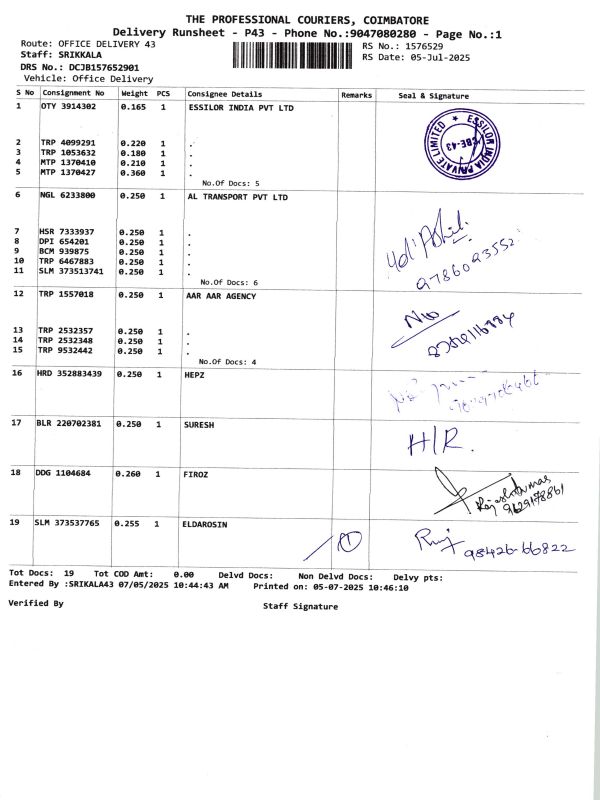 THE PROFESSIONAL COURIERS, COIMBATORE
Delivery Runsheet - P43 - Phone No.:9047080280 - Page No.:1
Route: OFFICE DELIVERY 43 RS No.: 1576529
Staff: SRIKKALA RS Date: 05-Jul-2025
DRS No.: DCJB157652901
Vehicle: Office Delivery
S No Consignment No Weight PCS Consignee Details Remarks Seal & Signature
1 OTY 3914302 0.165 1 ESSILOR INDIA PVT LTD
ESSILOR INDIA PRIVATE LIMITED ★
CBE-43
2 TRP 4099291 0.220 1 .
3 TRP 1053632 0.180 1 .
4 MTP 1370410 0.210 1 .
5 MTP 1370427 0.360 1 .
No.Of Docs: 5
6 NGL 6233800 0.250 1 AL TRANSPORT PVT LTD
7 HSR 7333937 0.250 1 .
8 DPI 654201 0.250 1 .
9 BCM 939875 0.250 1 .
10 TRP 6467883 0.250 1 .
11 SLM 373513741 0.250 1 .
No.Of Docs: 6
12 TRP 1557018 0.250 1 AAR AAR AGENCY
13 TRP 2532357 0.250 1 .
14 TRP 2532348 0.250 1 .
15 TRP 9532442 0.250 1 .
No.Of Docs: 4
16 HRD 352883439 0.250 1 HEPZ
17 BLR 220702381 0.250 1 SURESH
H/R.
18 DDG 1104684 0.260 1 FIROZ
Rajeshkumar
9629178861
19 SLM 373537765 0.255 1 ELDAROSIN
1
98426-66822
Tot Docs: 19 Tot COD Amt: 0.00 Delvd Docs: Non Delvd Docs: Delvy pts:
Entered By :SRIKALA43 07/05/2025 10:44:43 AM Printed on: 05-07-2025 10:46:10
Verified By Staff Signature